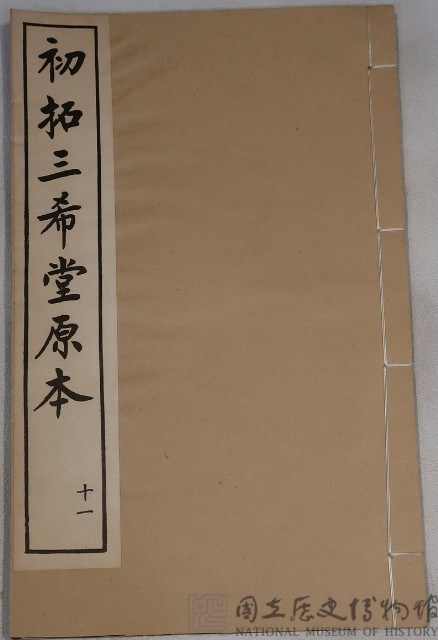 初拓三希堂原本
十一
國立歷史博物館
NATIONAL MUSEUM OF HISTORY